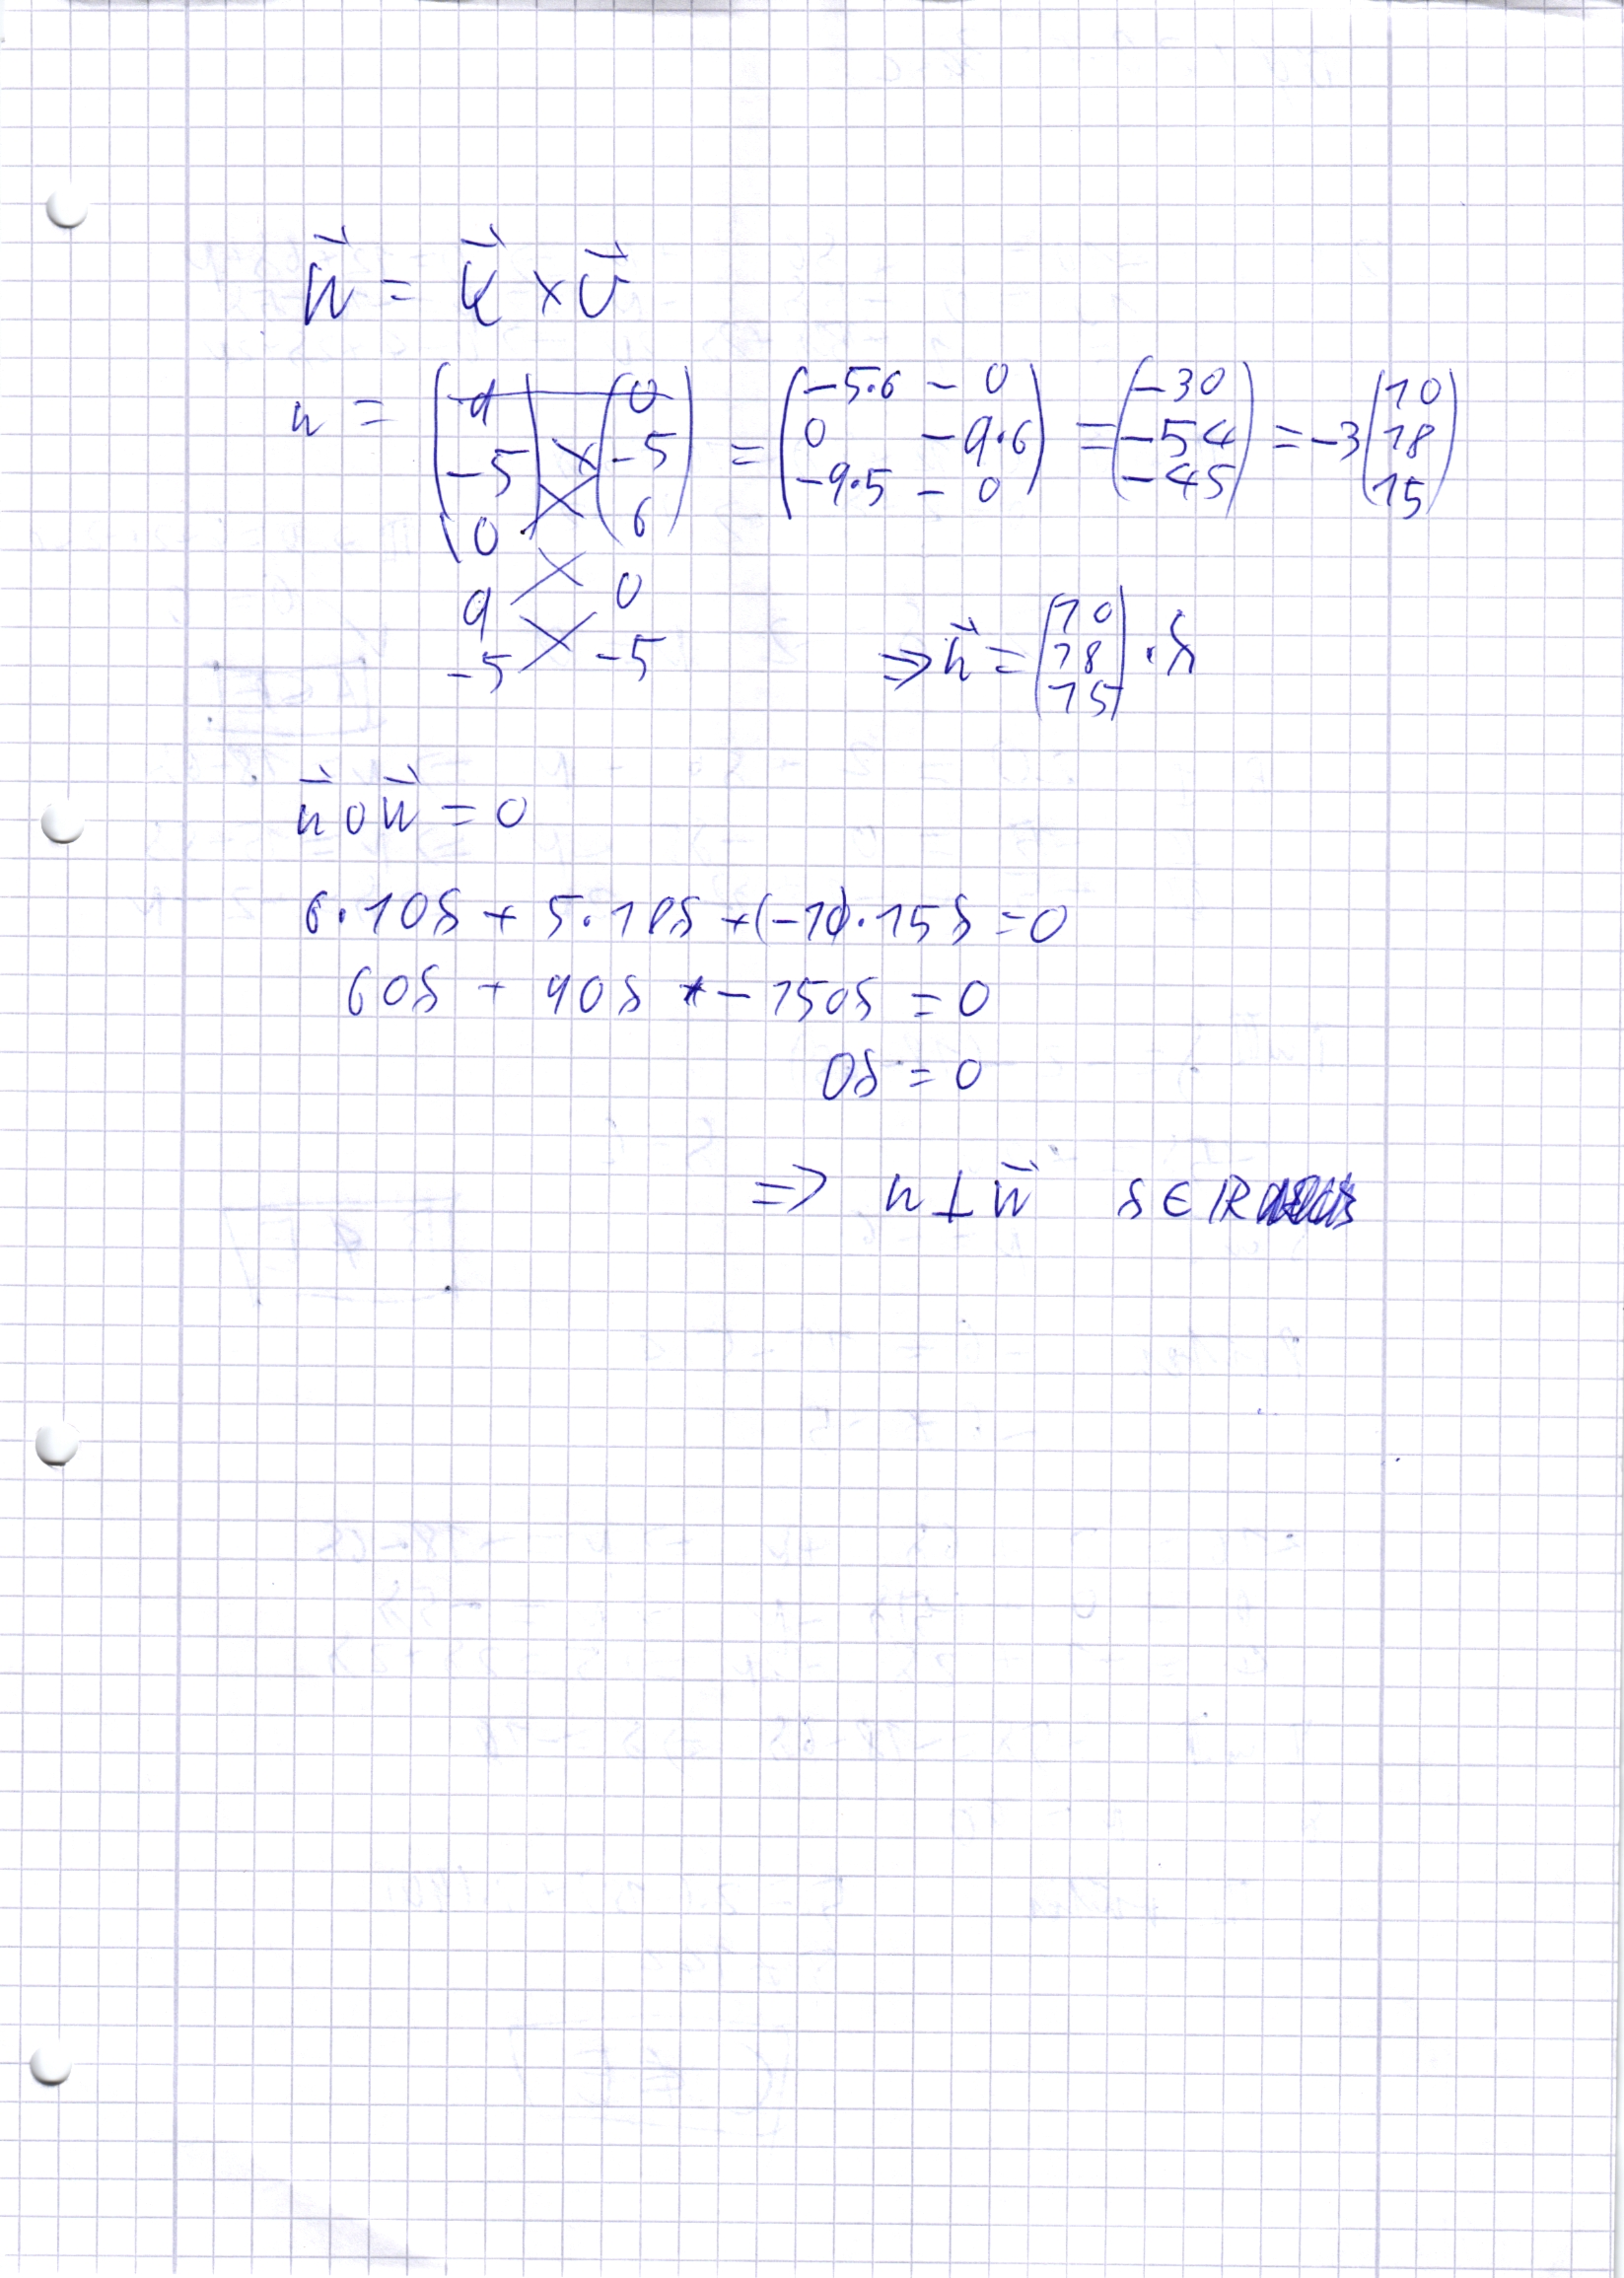 n⃗ = u⃗ × v⃗
n = (9 -5 0) × (0 -5 6) = (-5·6 - 0 0 - 9·6 -9·5 - 0) = (-30 -54 -45) = -3 (10 18 15)
9 0
-5 -5
⇒ n⃗ = (10 18 15) · s
n⃗ ∘ w⃗ = 0
6·10s + 5·18s + (-10)·15s = 0
60s + 90s + - 150s = 0
0s = 0
⇒ n ⊥ w⃗ s ∈ ℝ